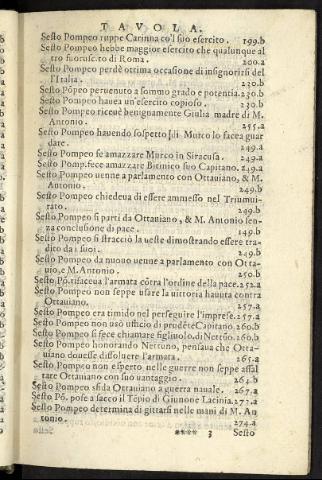 TAVOLA.
Sesto Pompeo ruppe Carinna co'l suo esercito. 199.b
Sesto Pompeo hebbe maggior esercito che qualunque al
tro fuoruscito di Roma. 200.a
Sesto Pompeo perdè ottima occasione di insignorirsi del
l'Italia. 230.b
Sesto Põpeo peruenuto a sommo grado e potentia. 230.b
Sesto Pompeo haueua un'esercito copioso. 230.b
Sesto Pompeo riceuè benignamente Giulia madre di M.
Antonio. 235.a
Sesto Pompeo hauendo sospetto di Murco lo facea guar
dare. 249.a
Sesto Pompeo fe amazzare Murco in Siracusa. 249.a
Sesto Pomp. fece amazzare Bitinico suo Capitano. 249.a
Sesto Pompeo uenne a parlamento con Ottauiano, & M.
Antonio. 249.b
Sesto Pompeo chiedeua di essere ammesso nel Triumui-
rato. 249.b
Sesto Pompeo si parti da Ottauiano, & M. Antonio sen-
za conclusione di pace. 149.b
Sesto Pompeo si stracciò la ueste dimostrando essere tra-
dito da i suoi. 249.b
Sesto Pompeo da nuouo uenne a parlamento con Otta-
uio, e M. Antonio. 250.b
Sesto Põ. rifaceua l'armata cõtra l'ordine della pace. 252.a
Sesto Pompeo non seppe usare la uittoria hauuta contra
Ottauiano. 257.a
Sesto Pompeo era timido nel perseguire l'imprese. 257.a
Sesto Pompeo non usò ufficio di prudẽte Capitano. 260.b
Sesto Pompeo si fece chiamare figliuolo di Nettũo. 260.b
Sesto Pompeo honorando Nettuno, pensaua che Otta-
uiano douesse dissoluere l'armata. 265.a
Sesto Pompeo non esperto nelle guerre non seppe assal
tare Ottauiano con suo uantaggio. 264.b
Sesto Pompeo sfida Ottauiano a guerra nauale. 267.a
Sesto Põ. pose a sacco il Tẽpio di Giunone Lacinia. 272.a
Sesto Pompeo determina di gittarsi nelle mani di M. An
tonio. 274.a
**** 3 Sesto